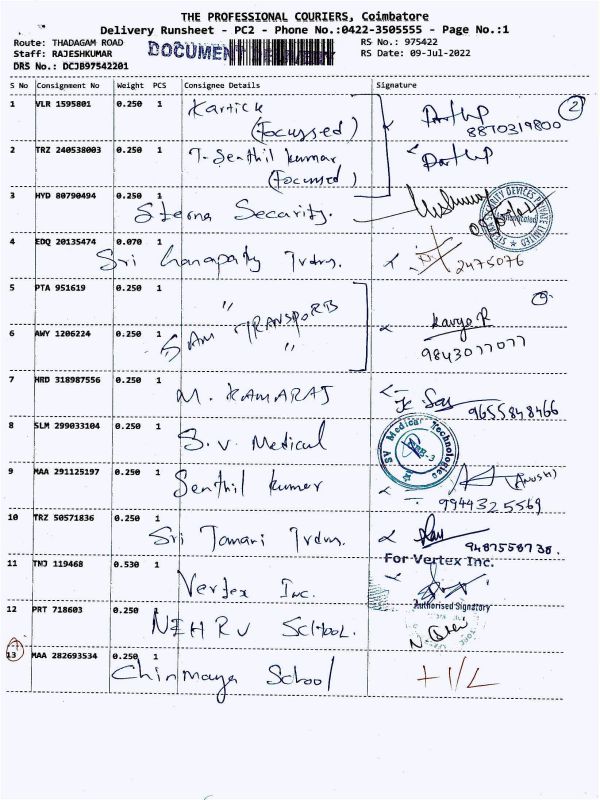 THE PROFESSIONAL COURIERS, Coimbatore
Delivery Runsheet - PC2 - Phone No.:0422-3505555 - Page No.:1
Route: THADAGAM ROAD
Staff: RAJESHKUMAR
DRS No.: DCJB97542201
DOCUMENT
RS No.: 975422
RS Date: 09-Jul-2022
S No Consignment No Weight PCS Consignee Details Signature
1 VLR 1595801 0.250 1 Kartick
(Focussed)
2
8870319800
2 TRZ 240538003 0.250 1 T. Senthil kumar
(Focussed)
3 HYD 80790494 0.250 1 Sterna Security.
4 EDQ 20135474 0.070 1 Sri Ganapathy Trdrs.
2475076
5 PTA 951619 0.250 1 "
SAM TRANSPORB
6 AWY 1206224 0.250 1 "
Kavya R
9843077077
7 HRD 318987556 0.250 1 M. KAMARAJ
9655848466
8 SLM 299033104 0.250 1 S. V. Medical
SV Medical Technologies
9 MAA 291125197 0.250 1 Senthil kumar
9944325569
10 TRZ 50571836 0.250 1 Sri Tamari Trdrs.
9487558738.
11 TNJ 119468 0.530 1 Vertex Inc.
For Vertex Inc.
Authorised Signatory
12 PRT 718603 0.250 NEHRU SCHOOL.
13 MAA 282693534 0.250 1 Chinmaya School